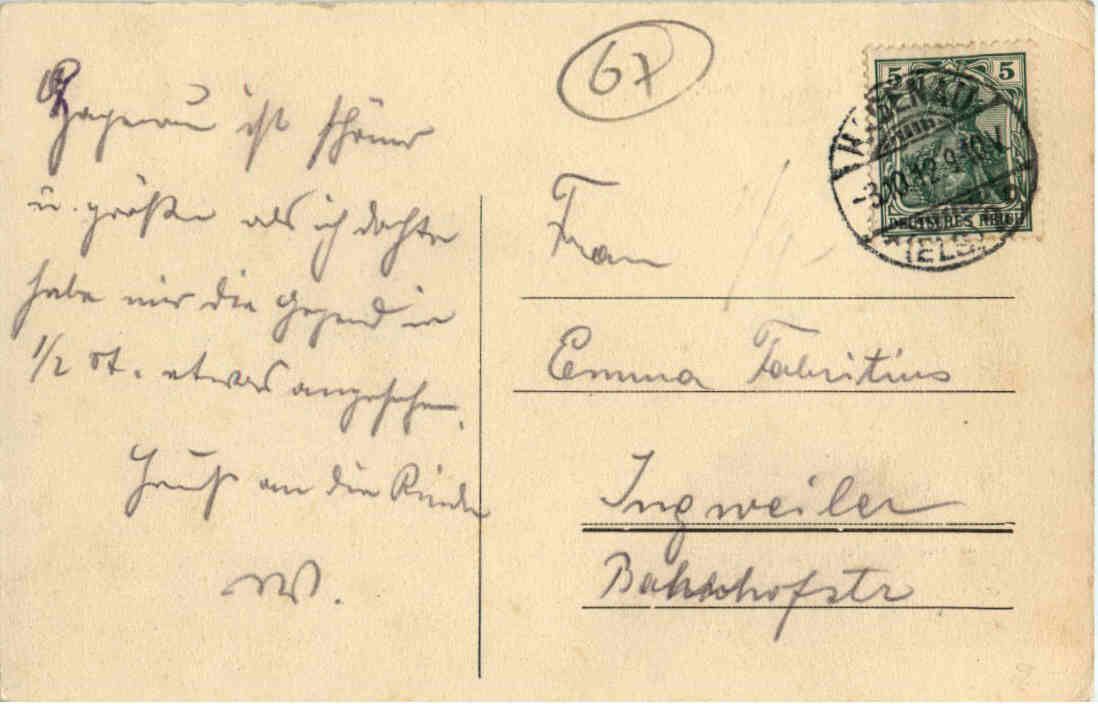 Hagenau ist schöner
u. größer als ich dachte
habe mir die Gegend in
1/2 St. etwas angesehen.
Gruß an die Kinder
W.
67
5 5
HAGENAU
-3.10.12.9-10V.
DEUTSCHES REICH
(ELS.)
Frau
Emma Fabritius
Ingweiler
Bahnhofstr